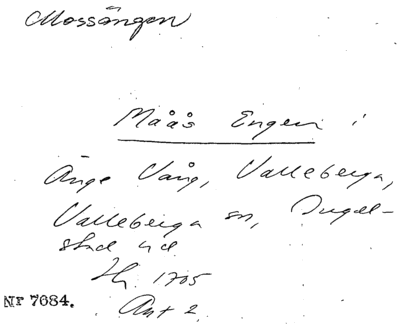 Mossängen
Måås Engen i
Änge Vång, Valleberga,
Valleberga sn, Ingel-
stad hd
Hy. 1705
Akt 2.
Nr 7684.